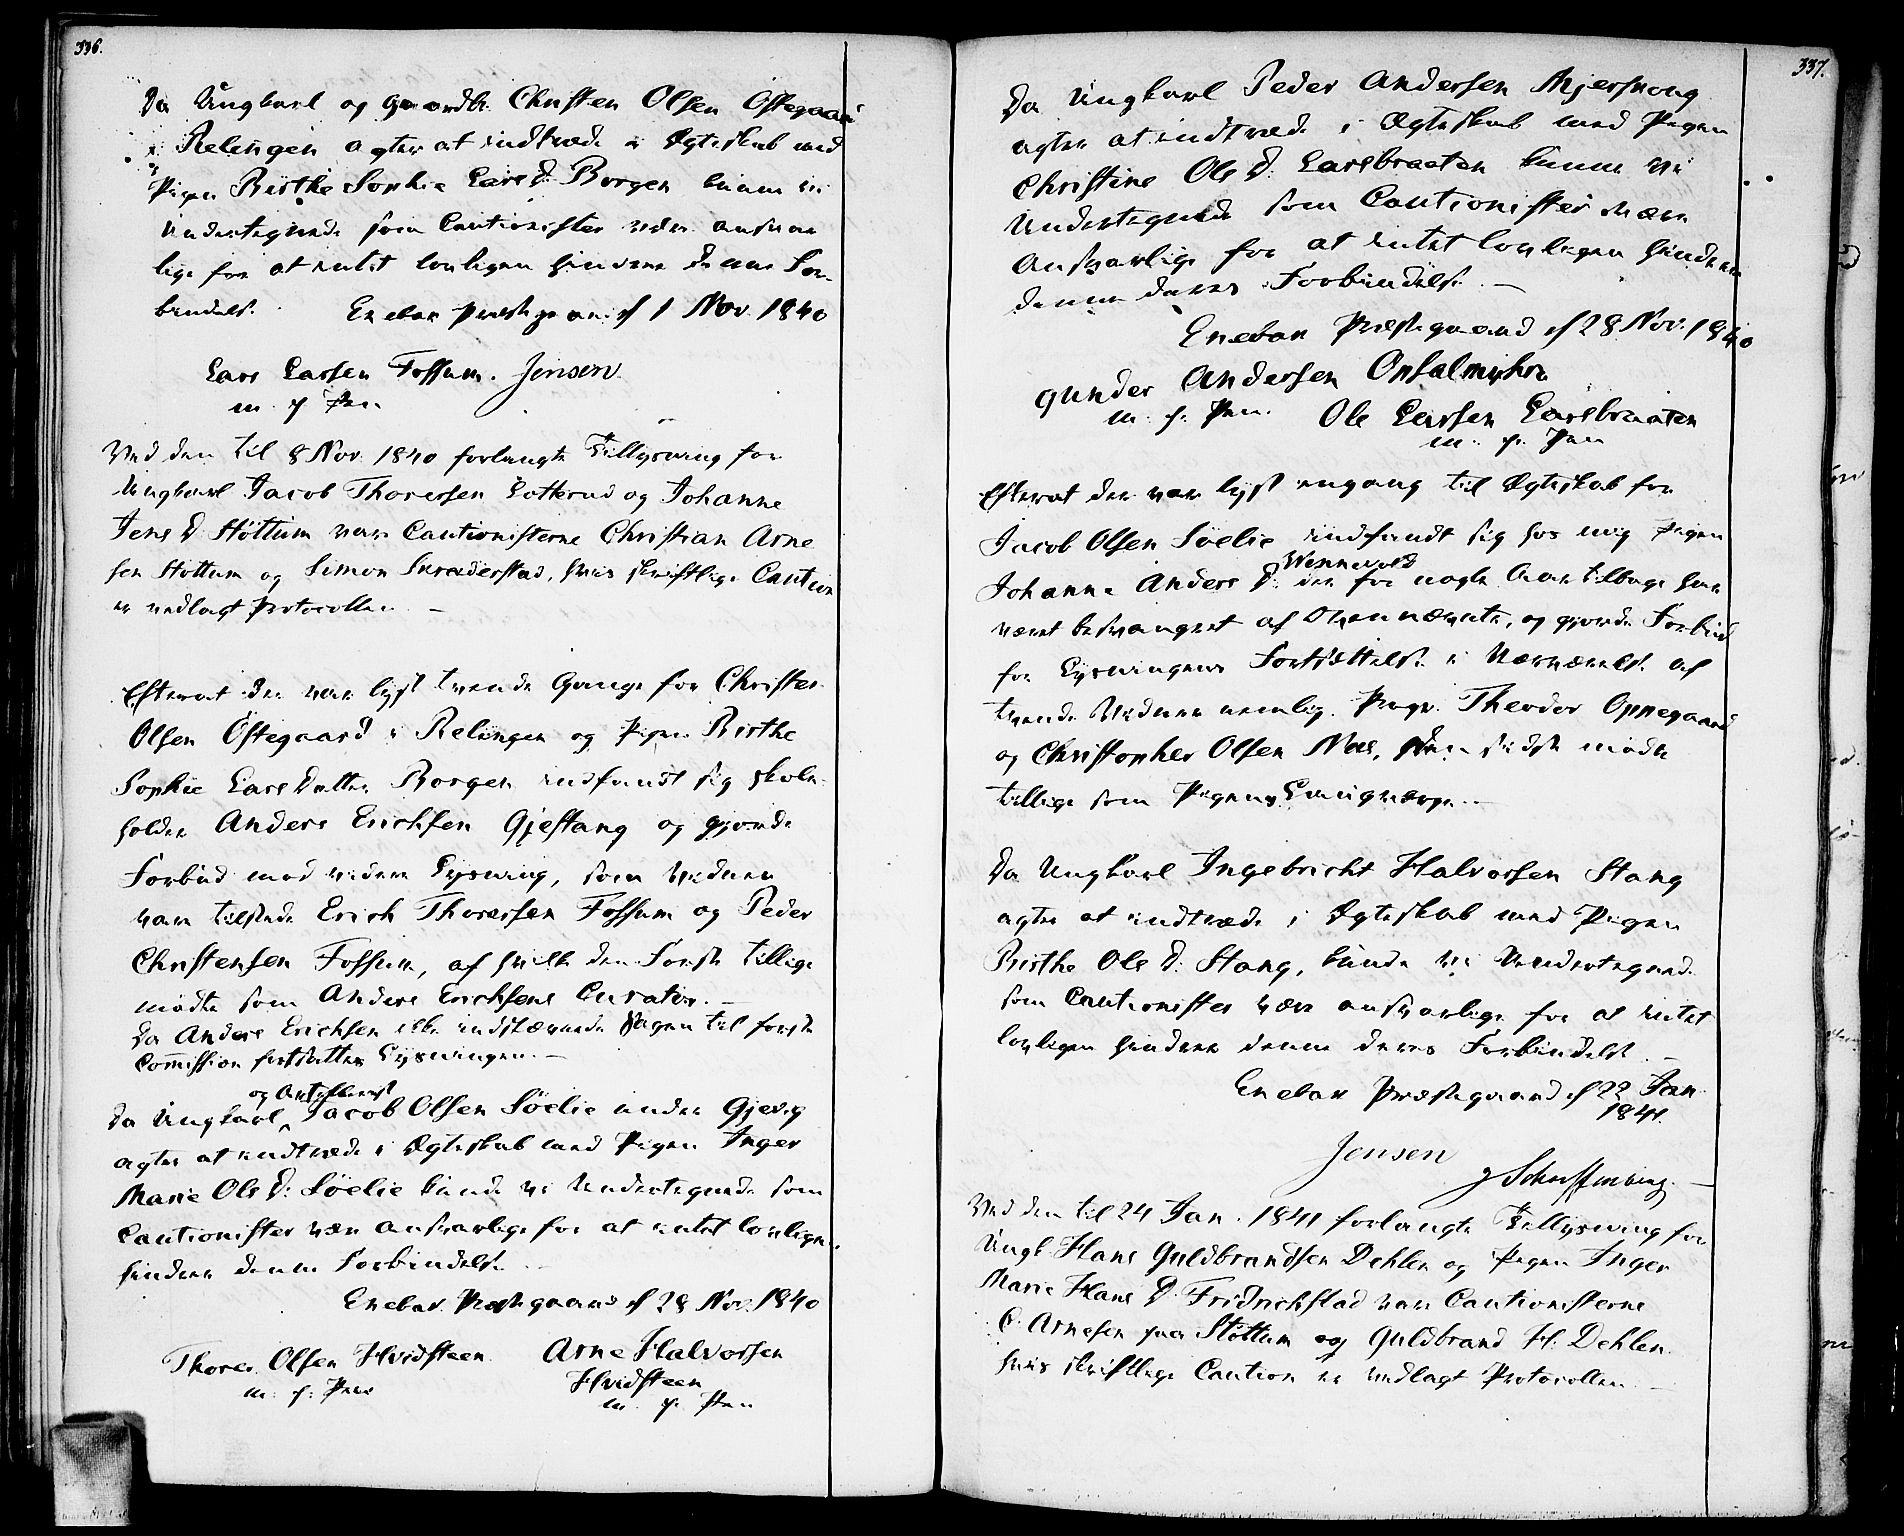 336.
Da Ungkarl og Gaardbr. Christen Olsen Østegaard
i Relingen agter at indtræde i Ægteskab med
Pigen Birthe Sophie Lars D. Borgen kunne vi
Undertegnede som Cautionister være ansvar
lige for at intet lovligen hindrer denne For-
bindelse.
Enebak Præstegaard d 1 Nov. 1840
Lars Larsen Fossum. Jensen
m. f. Pen
Ved den til 8 Nov. 1840 forlangte Tillysning for
Ungkarl Jacob Thoresen Lotterud og Johanne
Jens D. Støttum vare Cautionisterne Christian Arne
sen Støttum og Simon Skræderstad, hvis skriftlige Caution
er vedlagt Protocollen. –
Efterat der var lyst tvende Gange for Christen
Olsen Østegaard i Relingen og Pigen Birthe
Sophie Lars Datter Borgen indfandt sig Skole-
holder Anders Erichsen Gjestang og gjorde
Forbud mod videre Lysning, som Vidner
vare tilstede Erich Thoresen Fossum og Peder
Christensen Fossum, af hvilke den Første tillige
mødte som Anders Erichsens Curator. –
Da Anders Erichsen ikke indstævnede Sagen til første
Commission fortsattes Lysningen. –
og Artillerist
Da Ungkarl Jacob Olsen Søelie under Gjevig
agter at indtræde i Ægteskab med Pigen Inger
Marie Ols D: Søelie kunde vi Undertegnede som
Cautionister være ansvarlige for at intet lovligen
hindrer denne Forbindelse.
Enebak Præstegaard d 28 Nov. 1840
Thores Olsen Hvidsteen
m. f. Pen
Arne Halvorsen
Hvidsteen
m. f. Pen
337.
Da Ungkarl Peder Andersen
agter at indtræde i Ægteskab med Pigen
Christine Ols D: Larsbraaten kunne vi
Undertegnede som Cautionister være
Ansvarlige for at intet lovligen hindrer
denne deres Forbindelse. –
Enebak Præstegaard d 28 Nov. 1840
Gunder Andersen Opsalmyhra
m. f. Pen.
Ole Larsen Larsbraaten
m. f. Pen
Efterat der var lyst engang til Ægteskab for
Jacob Olsen Søelie indfandt sig hos mig Pigen
Wennevold
Johanne Anders D: der for nogle Aar tilbage har
været besvangret af Ovennævnte, og gjorde Forbud
for Lysningens Fortsættelse i Nærværelse af
tvende Vidner nemlig Theodor Oppegaard
og Christopher Olsen Næs, den sidste mødte
tillige som Pigens Laugværge. –
Da Ungkarl Ingebricht Halvorsen Stang
agter at indtræde i Ægteskab med Pigen
Birthe Ols D: Stang, kunde vi Undertegnede
som Cautionister være ansvarlige for at intet
lovligen hindrer denne deres Forbindelse. –
Enebak Præstegaard d 22 Jan.
1841.
Jensen
Ved den til 24 Jan. 1841 forlangte Tillysning for
Ungk. Hans Guldbrandsen Dehlen og Pigen Inger
Marie Hans D. Fridrichstad vare Cautionisterne
C. Arnesen paa Støttum og Guldbrand H. Dehlen
hvis skriftlige Caution er vedlagt Protocollen. –